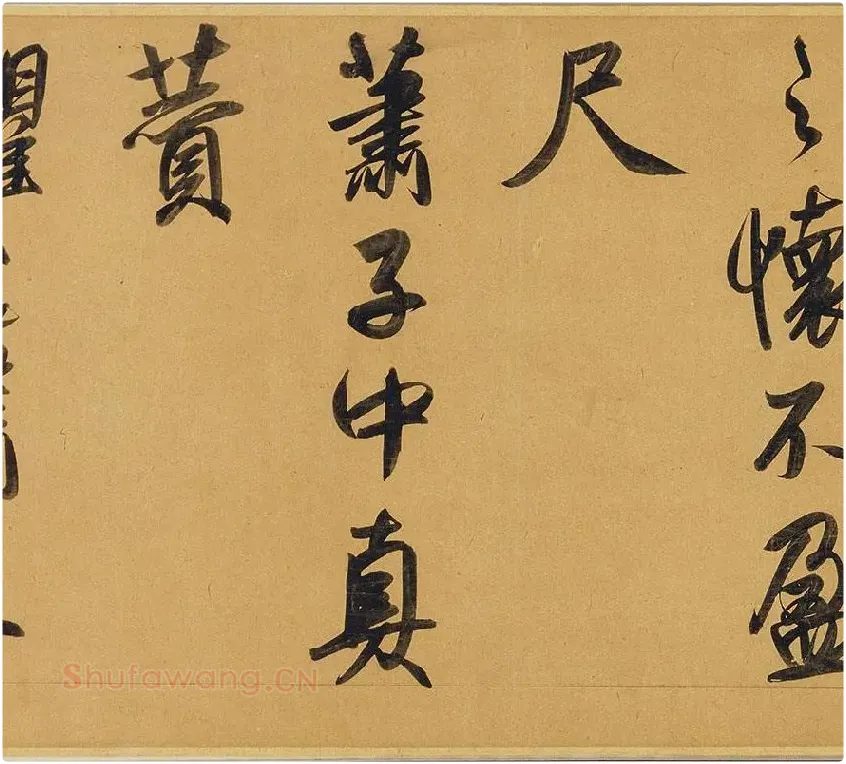 之懷不盈
尺
蕭子中真
贊
Shufawang.CN